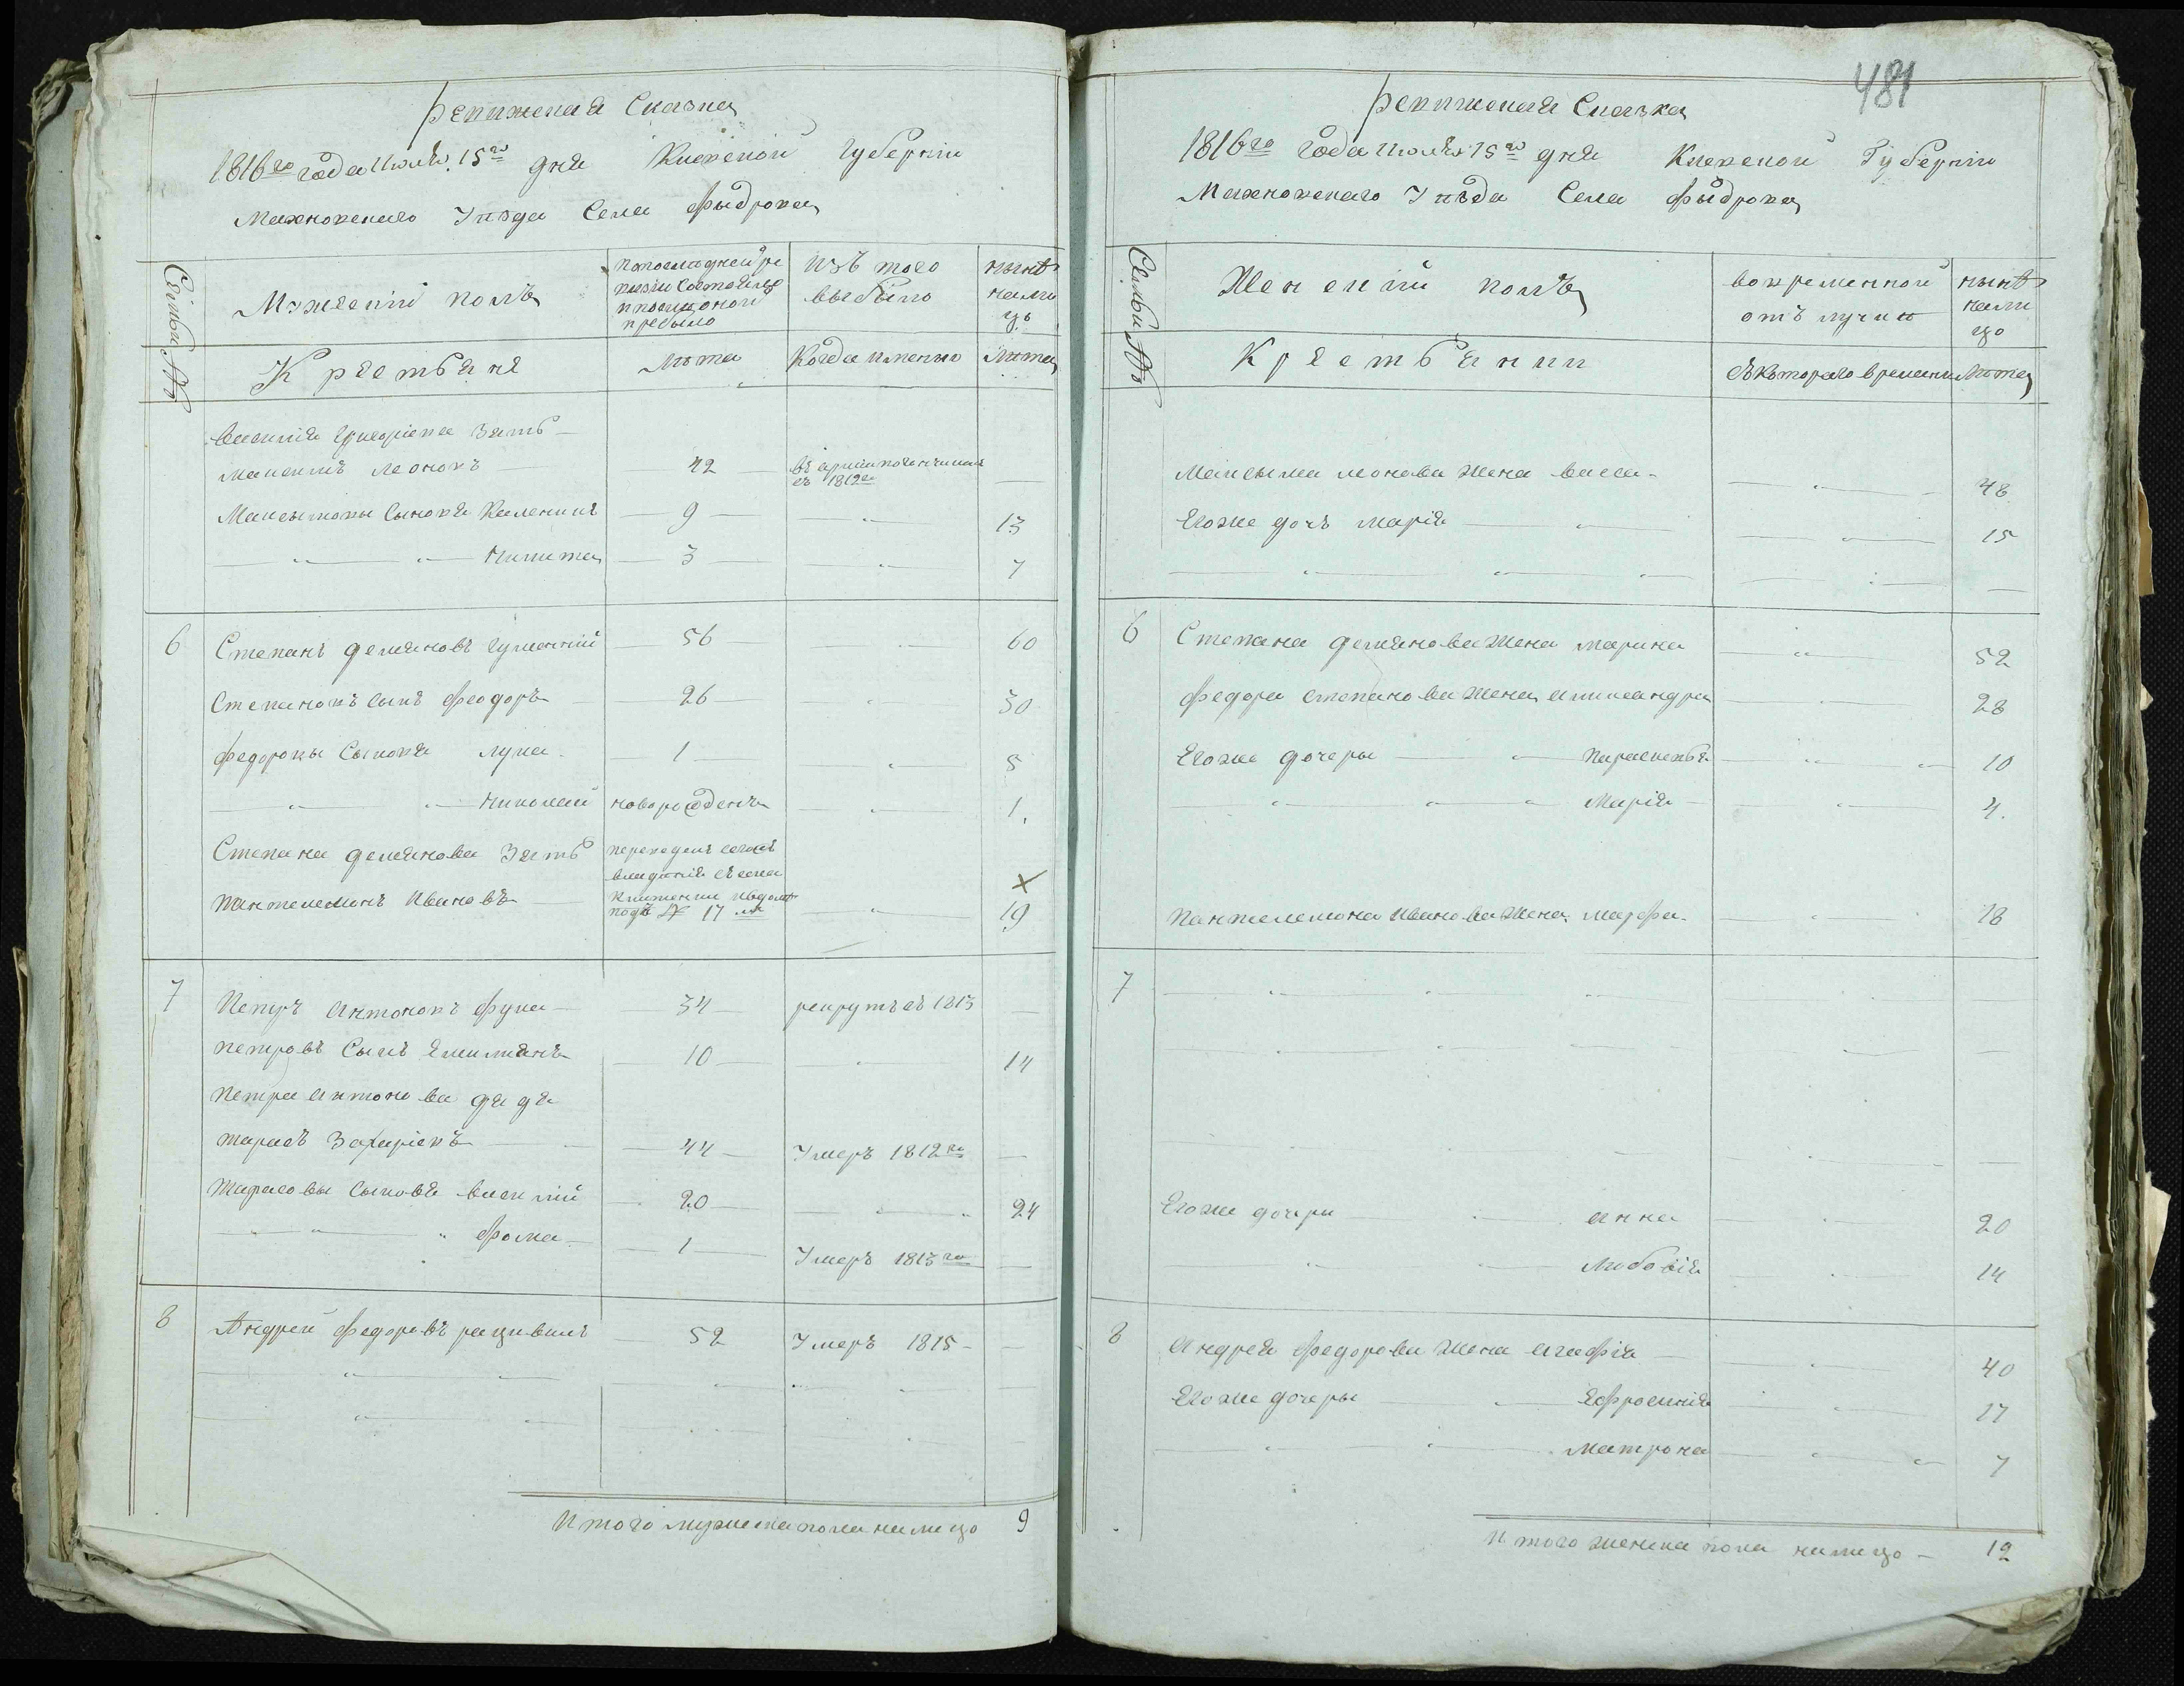 Ревижская Сказка
1816го года Июля 15го дня Киевской Губернии
Махновскаго Уезда Села Фыдрова
Семьи №
Мужеский полъ
По последней ревизии состояло и после оной прибыло
Изъ того выбыло
Ныне на лицо
Крестьяне
Лета
Когда именно
Лета
Василия Григориева Зять
Максимъ Леоновъ 42 въ 1812го —
Максымовы Сыновя Каленикъ 9 13
Никита 3 7
6 Степанъ Демяновъ Гуменний 56 60
Степановъ Сынъ Феодоръ 26 30
Федоровы Сыновя Лука 1 5
Николай новорожденъ 1.
Степана Демянова Зять
Пантелемонъ Ивановъ 17 19
7 Петръ Антоновъ Фука 34 рекрутъ въ 1813 —
Петровъ Сынъ Емилиянъ 10 14
Петра Антонова дядя
Тарасъ Захариевъ 44 Умеръ 1812го —
Тарасовы Сыновя Василий 20 24
Фома 1 Умеръ 1813го —
8 Андрей Федоровъ 52 Умеръ 1815 —
Итого мужеска пола на лицо 9
481
Ревижская Сказка
1816го года Июля 15го дня Киевской Губернии
Махновскаго Уезда Села Фыдрова
Семьи №
Женский полъ
Во временной отлучке
Ныне на лицо
Крестьянки
Съ котораго времени
Лета
Максыма Леонова жена Васса 48
Егоже дочь Мария 15
6 Степана Демянова жена Марина 52
Федора Степанова жена Александра 28
Егоже дочеры Параскевья 10
Мария 4.
Пантелемона Иванова жена Марфа 18
7
Егоже дочери Анна 20
Любовия 14
8 Андрея Федорова жена Агафия 40
Егоже дочеры Ефросиния 17
Матрона 7
Итого женска пола на лицо — 12